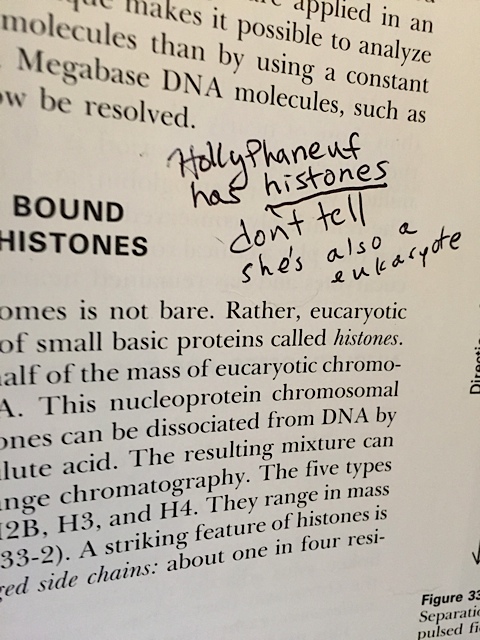 applied in an
makes it possible to analyze
molecules than by using a constant
Megabase DNA molecules, such as
be resolved.
HollyPhaneuf
has histones
don't tell
she's also a
eukaryote
BOUND
HISTONES
omes is not bare. Rather, eukaryotic
of small basic proteins called histones.
half of the mass of eukaryotic chromo-
A. This nucleoprotein chromosomal
ones can be dissociated from DNA by
ilute acid. The resulting mixture can
ange chromatography. The five types
H2B, H3, and H4. They range in mass
33-2). A striking feature of histones is
ged side chains: about one in four resi-
Directi
Figure 33
Separatio
pulsed fi